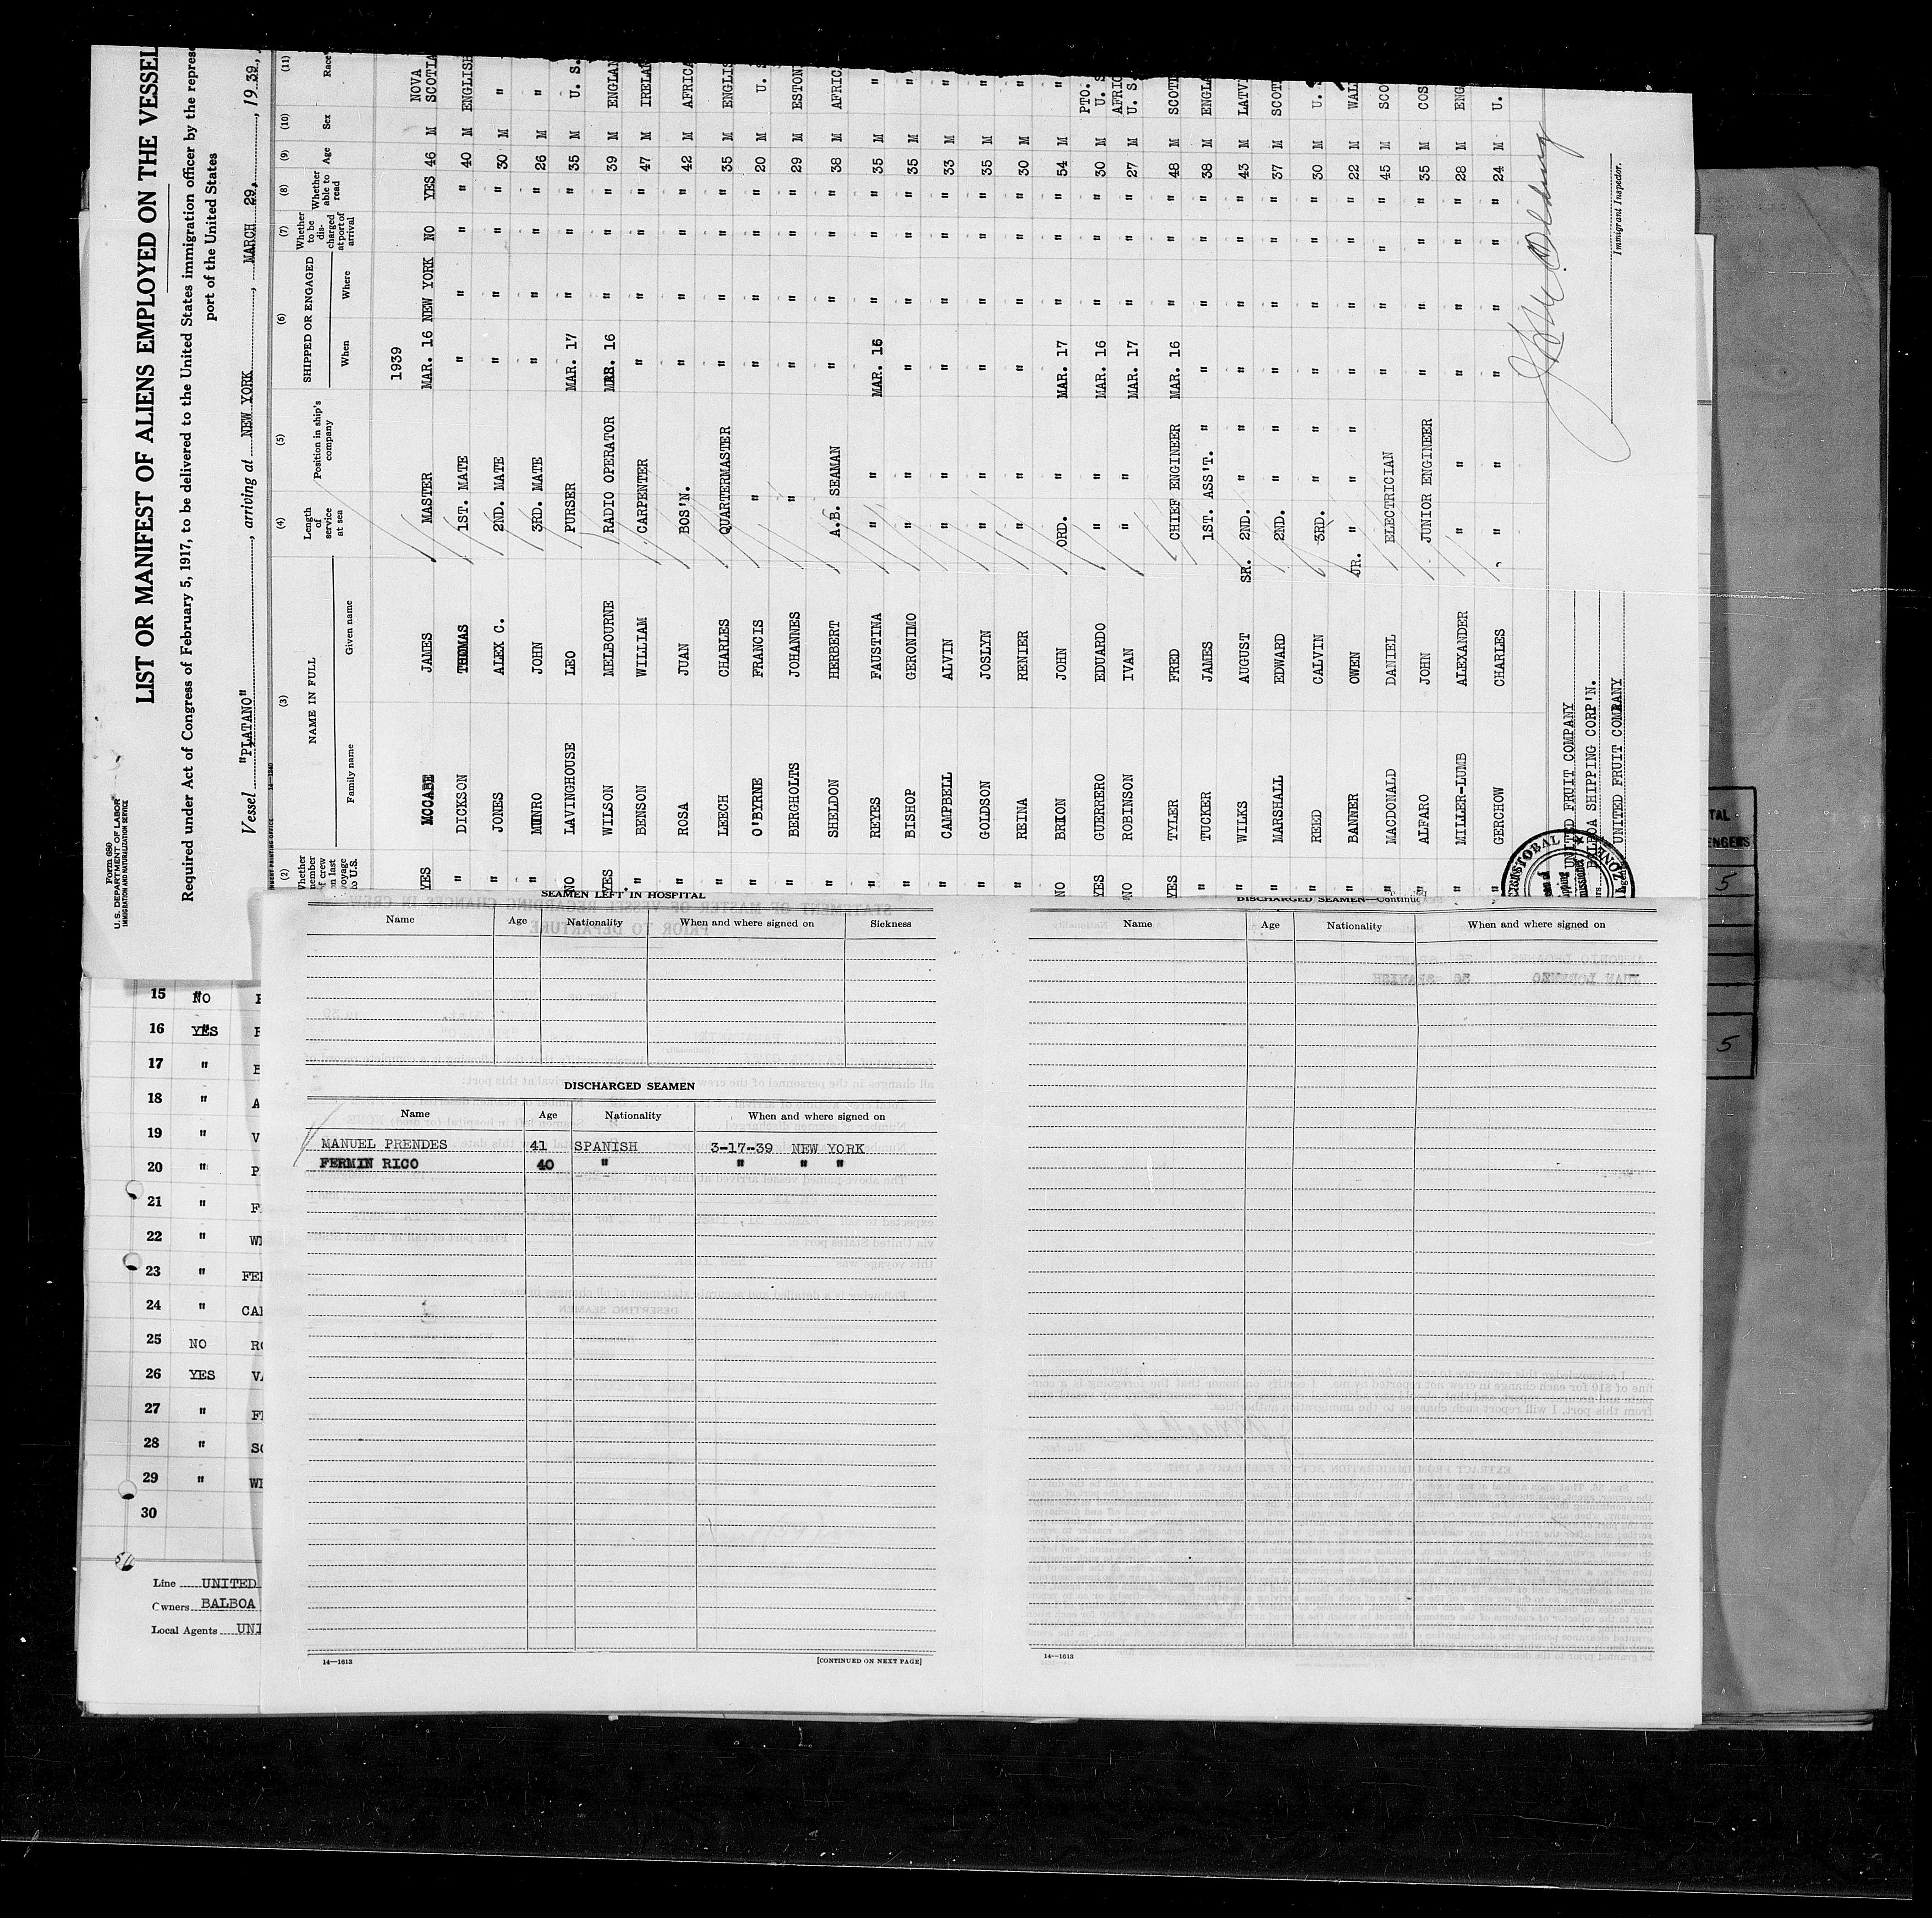 Form 680
U. S. DEPARTMENT OF LABOR
IMMIGRATION AND NATURALIZATION SERVICE
LIST OR MANIFEST OF ALIENS EMPLOYED ON THE VESSEL
Required under Act of Congress of February 5, 1917, to be delivered to the United States immigration officer by the
port of the United States
Vessel "PLATANO", arriving at NEW YORK, MARCH 29, 1939,
(2) (3) (4) (5) (6) (7) (8) (9) (10) (11)
NAME IN FULL Length of service at sea Position in ship's company SHIPPED OR ENGAGED Whether to be discharged at port of arrival Whether able to read Age Sex Race
Family name Given name When Where
1939
YES MCCABE JAMES MASTER MAR. 16 NEW YORK NO YES 46 M NOVA SCOTIA
" DICKSON THOMAS 1ST. MATE " " " " 40 M ENGLISH
" JONES ALEX C. 2ND. MATE " " " " 30 M "
" MUNRO JOHN 3RD. MATE " " " " 26 M "
NO LAVINGHOUSE LEO PURSER MAR. 17 " " " 35 M U. S.
YES WILSON MELBOURNE RADIO OPERATOR MAR. 16 " " " 39 M ENGLAN
" BENSON WILLIAM CARPENTER " " " " 47 M IRELAN
" ROSA JUAN BOS'N. " " " " 42 M AFRICA
" LEECH CHARLES QUARTERMASTER " " " " 35 M ENGLIS
" O'BYRNE FRANCIS " " " " " 20 M U.
" BERGHOLTS JOHANNES " " " " " 29 M ESTON
" SHELDON HERBERT A.B. SEAMAN " " " " 38 M AFRIC
" REYES FAUSTINA " " MAR. 16 " " " 35 M "
" BISHOP GERONIMO " " " " " " 35 M "
" CAMPBELL ALVIN " " " " " " 33 M "
" GOLDSON JOSLYN " " " " " " 35 M "
" REINA RENIER " " " " " " 30 M "
NO BRION JOHN ORD. " MAR. 17 " " " 54 M "
YES GUERRERO EDUARDO " " MAR. 16 " " " 30 M PTO. U. S
NO ROBINSON IVAN " " MAR. 17 " " " 27 M AFRIC U. S.
YES TYLER FRED CHIEF ENGINEER MAR. 16 " " " 48 M SCOT
" TUCKER JAMES 1ST. ASS'T. " " " " 38 M ENGLA
" WILKS AUGUST SR. 2ND. " " " " " 43 M LATV
" MARSHALL EDWARD 2ND. " " " " " 37 M SCOT
" REED CALVIN 3RD. " " " " " 30 M U.
" BANNER OWEN JR. " " " " " " 22 M WAL
" MACDONALD DANIEL ELECTRICIAN " " " " 45 M SCO
" ALFARO JOHN JUNIOR ENGINEER " " " " 35 M COS
" MILLER-LUMB ALEXANDER " " " " " " 28 M ENG
" GERCHOW CHARLES " " " " " " 24 M U.
UNITED FRUIT COMPANY
BALBOA SHIPPING CORP'N.
UNITED FRUIT COMPANY
Immigrant Inspector.
CRISTOBAL
SEAMEN LEFT IN HOSPITAL
Name Age Nationality When and where signed on Sickness
DISCHARGED SEAMEN
Name Age Nationality When and where signed on
MANUEL PRENDES 41 SPANISH 3-17-39 NEW YORK
FERMIN RICO 40 " " " "
14—1613
[CONTINUED ON NEXT PAGE]
DISCHARGED SEAMEN—Continued
Name Age Nationality When and where signed on
14—1613
15 NO
16 YES
17 "
18 " A
19 " V
20 " P
21 " F
22 " WI
23 " FE
24 " CA
25 NO RO
26 YES VA
27 " F
28 " SC
29 " WI
30
Line UNITED
Owners BALBOA
Local Agents UNI
5
5